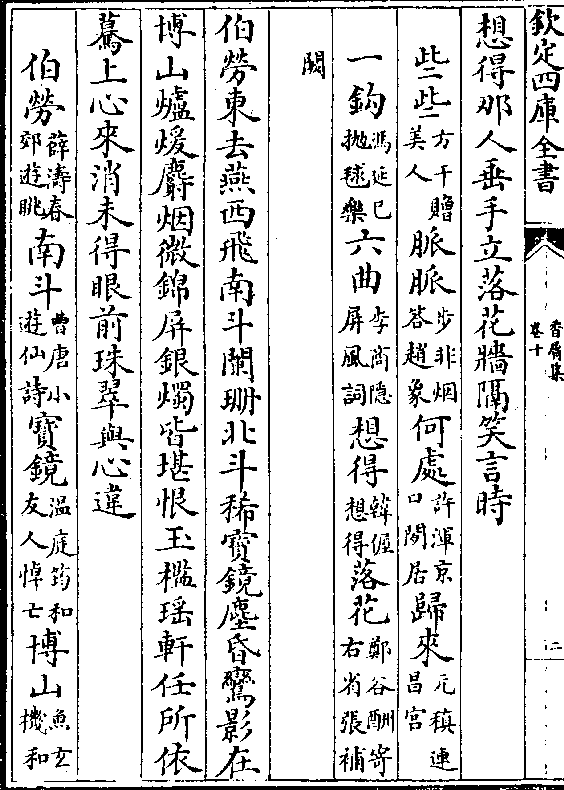 欽定四庫全書
香屑集
卷十
二
想得那人垂手立落花牆隔笑言時
些些方干贈美人脈脈步非烟答趙象何處許渾京口閒居歸來元稹連昌宮
一鈎馮延巳拋毬樂六曲李商隱屏風詞想得韓偓想得落花鄭谷酬寄右省張補
闕
伯勞東去燕西飛南斗闌珊北斗稀寶鏡塵昏鸞影在
博山爐煖麝烟微錦屏銀燭皆堪恨玉檻瑶軒任所依
驀上心來消未得眼前珠翠與心違
伯勞薛濤春郊遊眺南斗曹唐小遊仙詩寶鏡温庭筠和友人悼亡博山魚玄機和